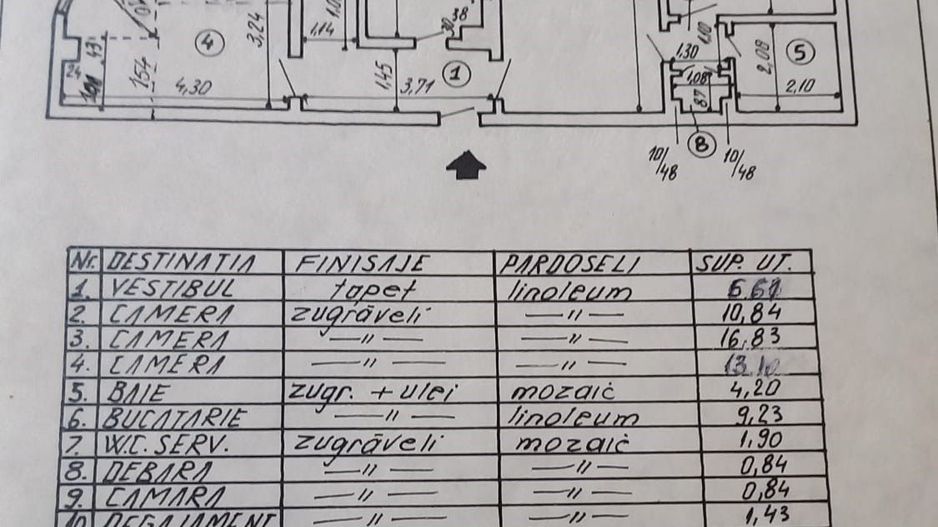 1,14
30
38
3,24
4
49
24
1,54
4,30
1,45
3,71
1
1,10
1,30
1,08
87
2,08
5
2,10
8
10/48
10/48
Nr. DESTINATIA FINISAJE PARDOSELI SUP. UT.
1. VESTIBUL tapet linoleum 6.61
2. CAMERA zugrăveli —〃— 10,84
3. CAMERA —〃— —〃— 16,83
4. CAMERA —〃— —〃— 13.10
5. BAIE zugr. + ulei mozaic 4,20
6. BUCATARIE —〃— linoleum 9,23
7. W.C. SERV. zugrăveli mozaic 1,90
8. DEBARA —〃— —〃— 0,84
9. CAMARA —〃— —〃— 0,84
10. DEGAJAMENT —〃— —〃— 1,43